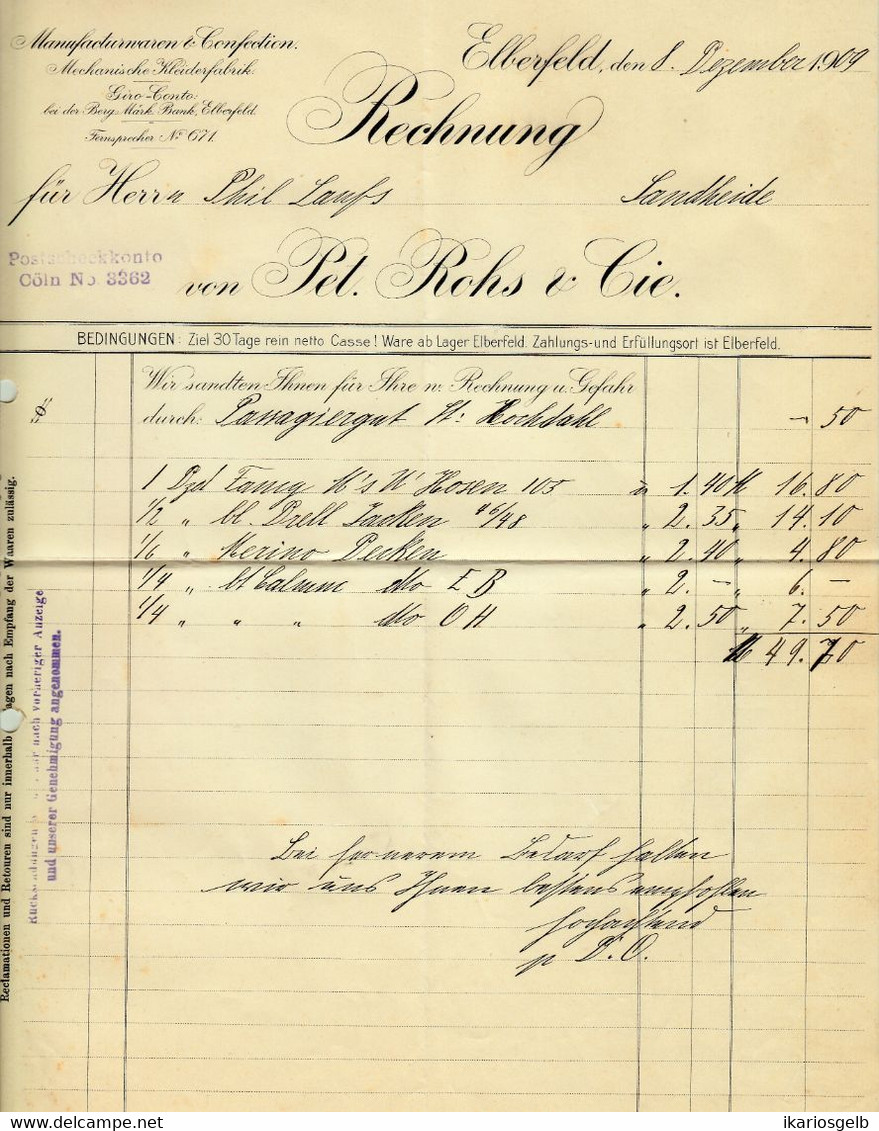 Manufacturwaren & Confection.
Mechanische Kleiderfabrik.
Giro-Conto:
bei der Berg. Märk. Bank, Elberfeld.
Fernsprecher No 671.
Elberfeld, den 8. Dezember 1909
Rechnung
für Herrn Phil Laufs Sandheide
Postscheckkonto
Cöln No. 3362
von Pet. Rohs & Cie.
BEDINGUNGEN: Ziel 30 Tage rein netto Casse! Ware ab Lager Elberfeld. Zahlungs-und Erfüllungsort ist Elberfeld.
Wir sandten Ihnen für Ihre w. Rechnung u. Gefahr
durch: Passagiergut St: Hochdahl 50
1 Dzd Hosen 105 1.40 M 16.80
1/2 " bl. Drell Jacken 46/48 " 2.35 " 14.10
1/6 " Merino Decken " 2.40 " 4.80
1/4 " bt dto E B " 2.— " 6.—
1/4 " " " dto O H " 2.50 " 7.50
M 49.70
Bei fernerem Bedarf halten
wir uns Ihnen bestens empfohlen
hochachtend
p D. O.
Reclamationen und Retouren sind nur innerhalb Tagen nach Empfang der Waaren zulässig.
Rücksendungen nur nach vorheriger Anzeige
und unserer Genehmigung angenommen.
www.delcampe.net
ikariosgelb